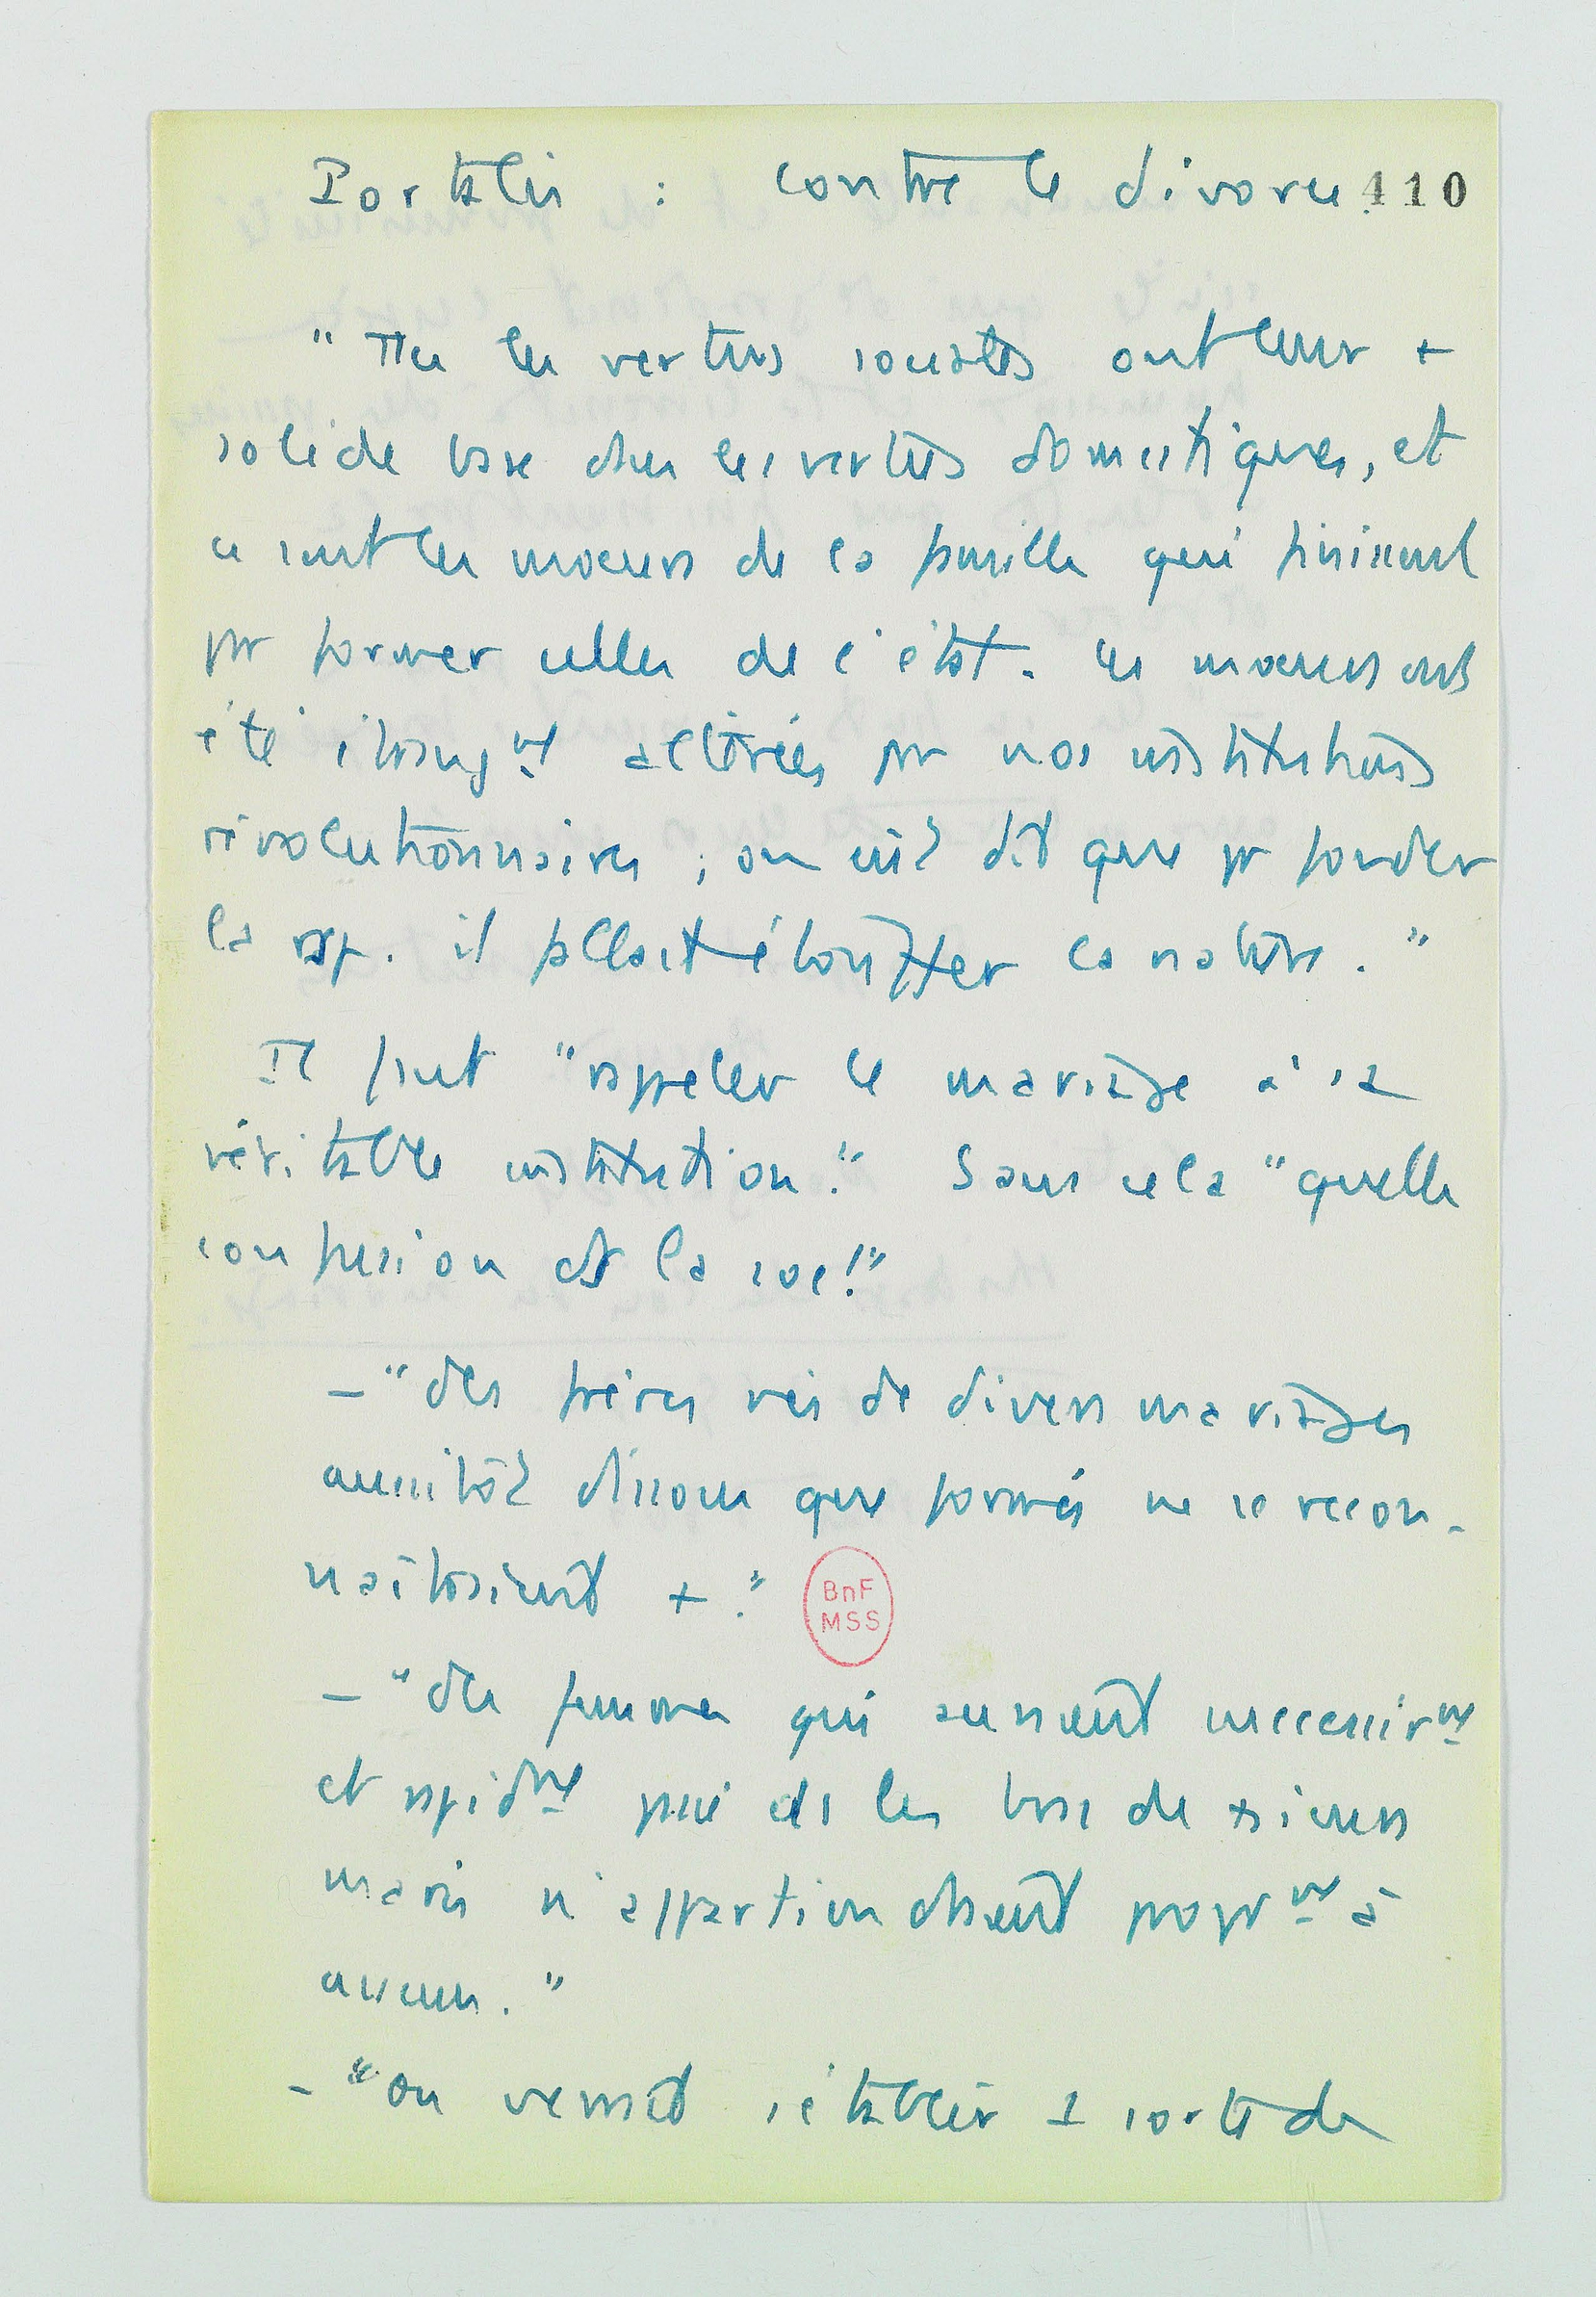 Portalis : contre le divorce 410
"Ttes les vertus sociales ont leur +
solide base ches les vertus domestiques, et
ce sont les moeurs de la famille qui finissent
par former celles de l'état. Les moeurs ont
été étrangnt altérées par nos institutions
révolutionnaires ; on eût dit que pr fonder
la rép. il fallait étouffer la nature."
Il faut "rappeler le mariage à sa
véritable institution." Sans cela "quelle
confusion ds la soc!"
– "des frères nés de divers mariages
aussitôt dissous que formés ne se recon-
naîtraient +."
– "des femmes qui auraient successivmt
et rapidmt passé ds les bras de +sieurs
maris n'appartiendraient proprmt à
aucun."
– "on verrait s'établir 1 sorte de
BnF
MSS